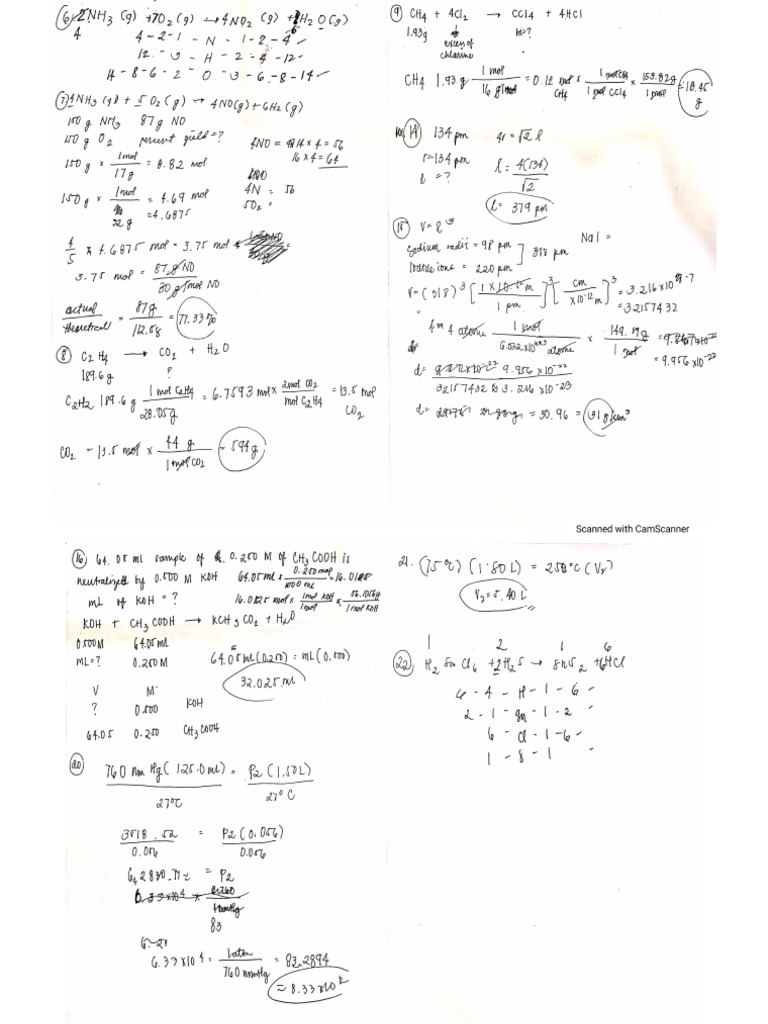 ⑥ 2NH3 (g) + 7O2 (g) → 4NO2 (g) + H2O (g)
4 4-2-1-N-1-2-4 ✓
12-3-H-2-4-12 ✓
14-8-6-2-O-3-6-8-14 ✓
⑦ 4NH3 (g) + 5O2 (g) → 4NO(g) + 6H2 (g)
150 g NH3 87g NO
150 g O2 percent yield = ?
4NO = 14 x 4 = 56
16 x 4 = 64
150 g x 1mol / 17g = 8.82 mol
4N = 56
5O2 =
150 g x 1mol / 32 g = 4.69 mol
= 4.6875
4/5 x 4.6875 mol = 3.75 mol
3.75 mol = 87 g NO / 30 g/mol NO
actual / theoretical = 87g / 112.5g = 77.33%
⑧ C2H4 → CO2 + H2O
189.6g ?
C2H2 189.6 g 1 mol C2H4 / 28.05g = 6.7593 mol x 2mol CO2 / mol C2H4 = 13.5 mol CO2
CO2 - 13.5 mol x 44 g / 1 mol CO2 = 594g
⑨ CH4 + 4Cl2 → CCl4 + 4HCl
1.93g excess of chlorine m=?
CH4 1.93 g 1 mol / 16 g/mol = 0.12 mol CH4 x 1 mol CH4 / 1 mol CCl4 x 153.82g / 1 mol = 18.45 g
⑭ 134 pm 4r = √2 l
r=134 pm l = 4(134) / √2
l = ?
l = 379 pm
⑮ V = l3 NaI =
Sodium radis = 98 pm ] 318 pm
Iodide ions = 220 pm
V = (318)3 [1 x 10-12 m / 1 pm]3 [cm / x10-12 m]3 = 3.216 x 10-7
= 32157432
4 atoms 1 mol / 6.022x1023 atoms x 149.89g / 1 mol
= 9.956 x 10-22
d = 9.956 x 10-22 / 32157432 x 3.216 x 10-23
d = = 30.96 = 31 g/cm3
Scanned with CamScanner
⑯ 64.05 mL sample of 0.250 M of CH3COOH is
neutralized by 0.500 M KOH 64.05 ml x 0.250 mol / 1000 mL = 16.0125
mL of KOH = ? 16.0125 mol x 1 mol KOH / 1 mol x 56.1056g / 1 mol KOH
KOH + CH3COOH → KCH3CO2 + H2O
0.500M 64.05 ml
mL = ? 0.250 M 64.05 ml (0.250) = mL (0.500)
32.025 mL
V M
? 0.500 KOH
64.05 0.250 CH3COOH
⑳ 760 mm Hg (125.0 ml) / 27°C = P2 (1.50L) / 27°C
3518.52 / 0.056 = P2 (0.056) / 0.056
62830.71 = P2
83
6.33x104 = 1 atm / 760 mmHg = 83.2894
= 8.33x102
21. (75°C) (1.80L) = 250°C (V2)
V2 = 5.40 L
1 2 1 6
㉒ H2SnCl6 + 2H2S → SnS2 + 6HCl
6 - 4 - H - 1 - 6 ✓
2 - 1 - Sn - 1 - 2 ✓
6 - Cl - 1 - 6 ✓
1 - S - 1 ✓